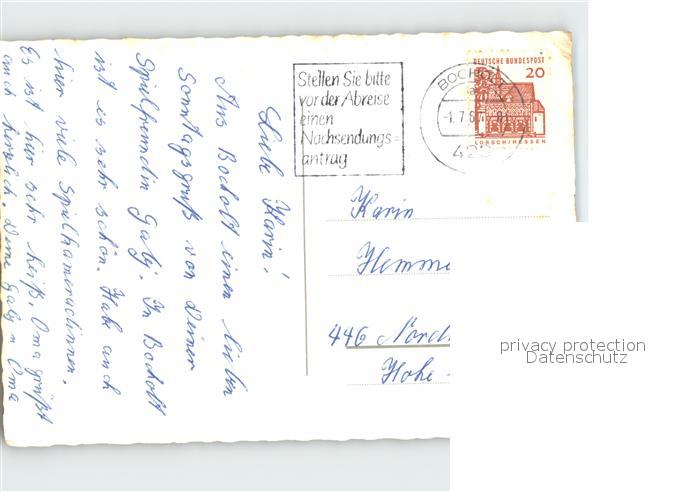 Liebe Karin!
Aus Bocholt einen lieben
Sonntagsgruß von Deiner
Spielfreundin Gaby. In Bocholt
ist es sehr schön. Habe auch
hier viele Spielkameradinnen.
Es ist hier sehr heiß. Oma grüßt
auch herzlich. Deine Gaby u Oma
Stellen Sie bitte
vor der Abreise
einen
Nachsendungs=
antrag
BOCHOLT
-1.7.6
42
DEUTSCHE BUNDESPOST
20
LORSCH/HESSEN
Karin
Hemme
446 Nord
Hohe -
privacy protection
Datenschutz